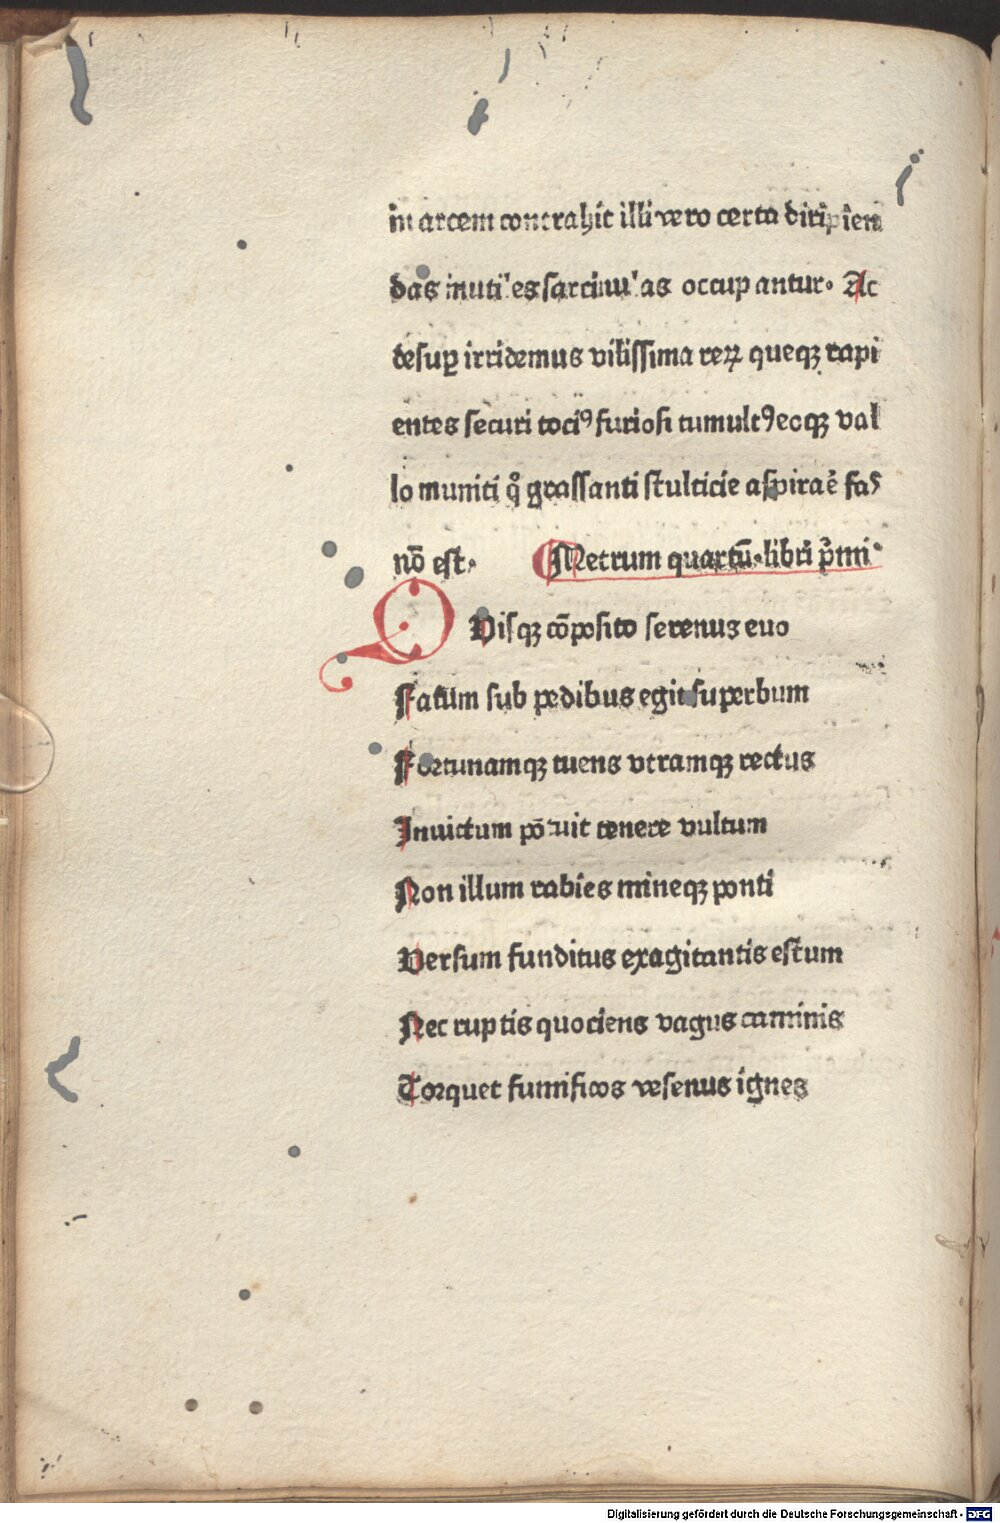 in arcem contrahit illi vero certa diripien
das inutiles sarcinulas occupantur. Ac
desuꝑ irridemus vilissima reꝝ queqꝫ rapi
entes securi tociꝰ furiosi tumultꝰ eoqꝫ val
lo muniti qͦ grassanti stulticie aspiraē fas
nō est. Metrum quartū. libri pͥmi
QVisqꝫ cōposito serenus euo
Fatum sub pedibus egit superbum
Fortunamqꝫ tuens vtramqꝫ rectus
Inuictum potuit tenere vultum
Non illum rabies mineqꝫ ponti
Versum funditus exagitantis estum
Nec ruptis quociens vagus caminis
Torquet fumificos vesenus ignes
Digitalisierung gefördert durch die Deutsche Forschungsgemeinschaft - DFG